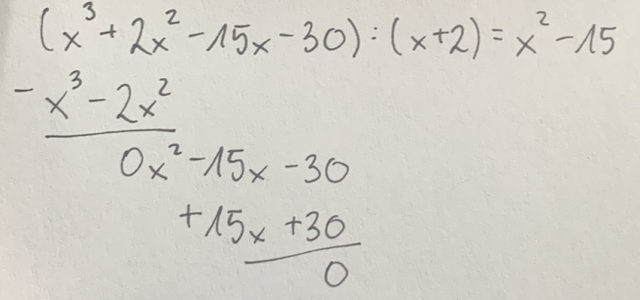 (x³+2x²-15x-30):(x+2)=x²-15
-x³-2x²
0x²-15x-30
+15x+30
0